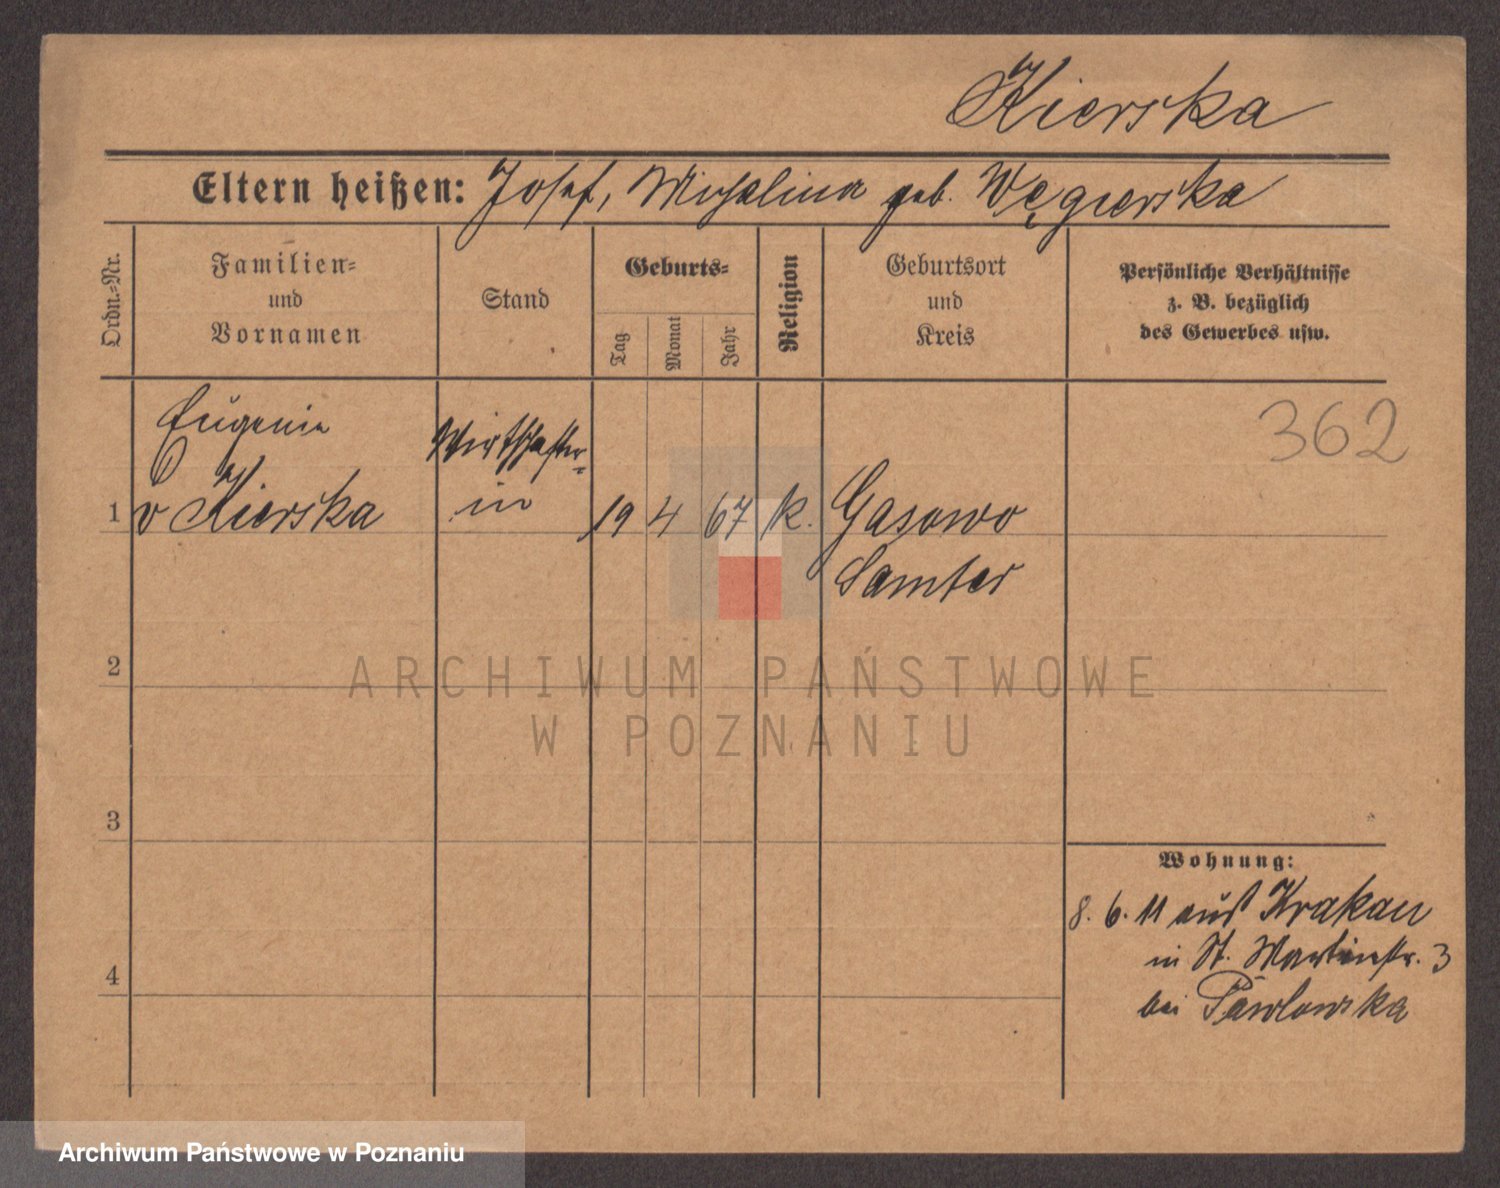 Kierska
Eltern heißen: Josef, Michalina geb. Węgierska
Ordn.-Nr.
Familien-
und
Vornamen
Stand
Geburts-
Tag
Monat
Jahr
Religion
Geburtsort
und
Kreis
Persönliche Verhältnisse
z. B. bezüglich
des Gewerbes usw.
362
Eugenie
1 v Kierska Wirthschafter-
in 19 4 67 k. Gasowo
Samter
2
3
4
Wohnung:
8. 6. 11 aus Krakau
in St. Martinstr. 3
bei Pawlowska
ARCHIWUM PAŃSTWOWE
W POZNANIU
Archiwum Państwowe w Poznaniu